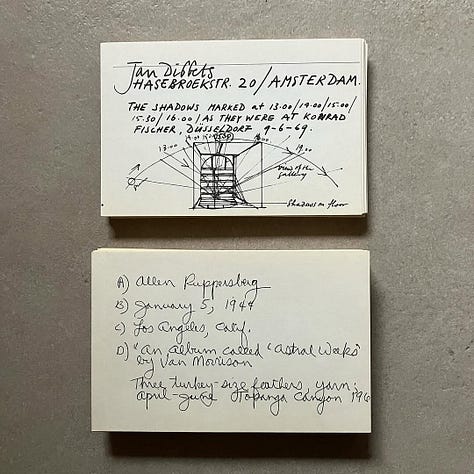 Jan Dibbets
HASEBROEKSTR. 20/AMSTERDAM.
THE SHADOWS MARKED at 13.00/14.00/15.00/
15.30/16.00/AS THEY WERE AT KONRAD
FISCHER, DÜSSELDORF 9-6-69.
13.00
view of the
gallery
Shadows on floor
A) Allen Ruppersberg
B) January 5, 1944
C) Los Angeles, Calif.
D) "An album called 'Astral Weeks'
by Van Morrison
Three turkey-size feathers, yarn;
april-june Topanga Canyon 196